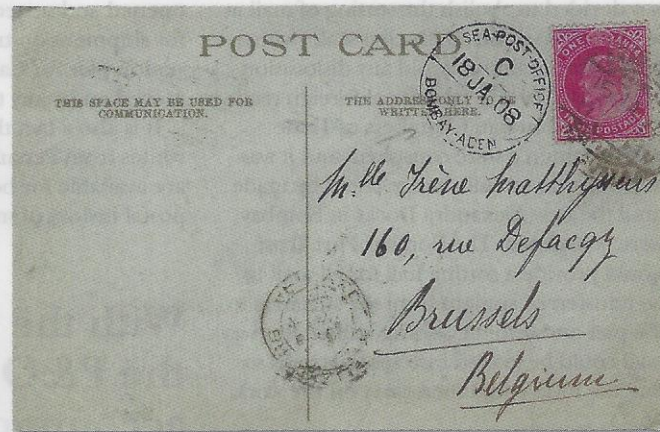 POST CARD
THIS SPACE MAY BE USED FOR
COMMUNICATION.
THE ADDRESS ONLY TO BE
WRITTEN HERE.
SEA-POST-OFFICE
C
18 JA. 08
BOMBAY-ADEN
ONE ANNA
POSTAGE
Mlle Irène Matthyssens
160, rue Defacqz
Brussels
Belgium